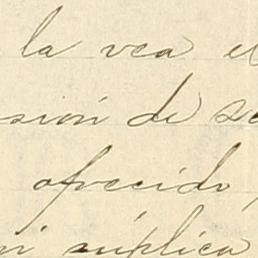 la vea e
sión de se
ofrecido,
ni súplica